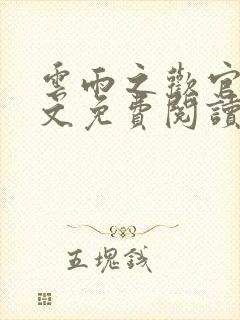 雲雨之歡官
文免費閱讀
五塊錢